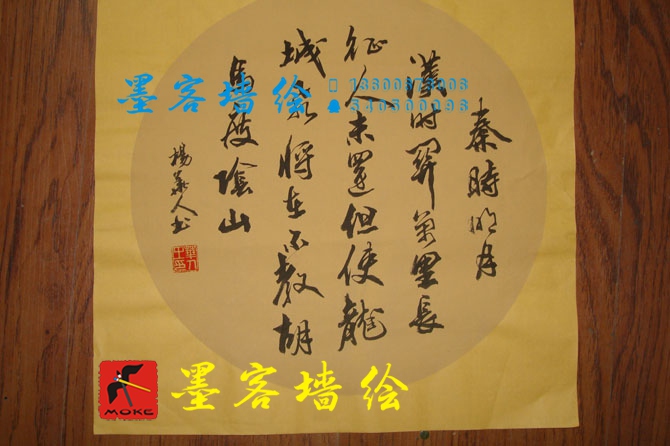 秦時明月
漢時關萬里長
征人未還但使龍
城飛將在不教胡
馬度陰山
楊人书
墨客墙绘
MOKE
墨客墙绘